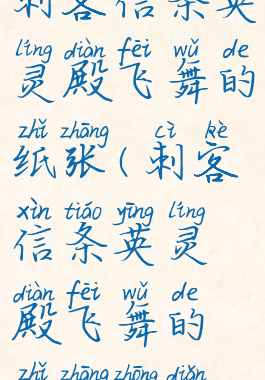 刺客信条英
líng diàn fēi wǔ de
灵殿飞舞的
zhǐ zhāng cì kè
纸张(刺客
xìn tiáo yīng líng
信条英灵
diàn fēi wǔ de
殿飞舞的
zhǐ zhāng zhōng diǎn